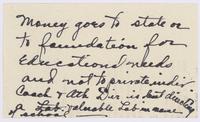 Money goes to state or
to foundation for
Educational needs
and not to private indiv
Coach & Ath Dir is best
valuable Lab in
of school